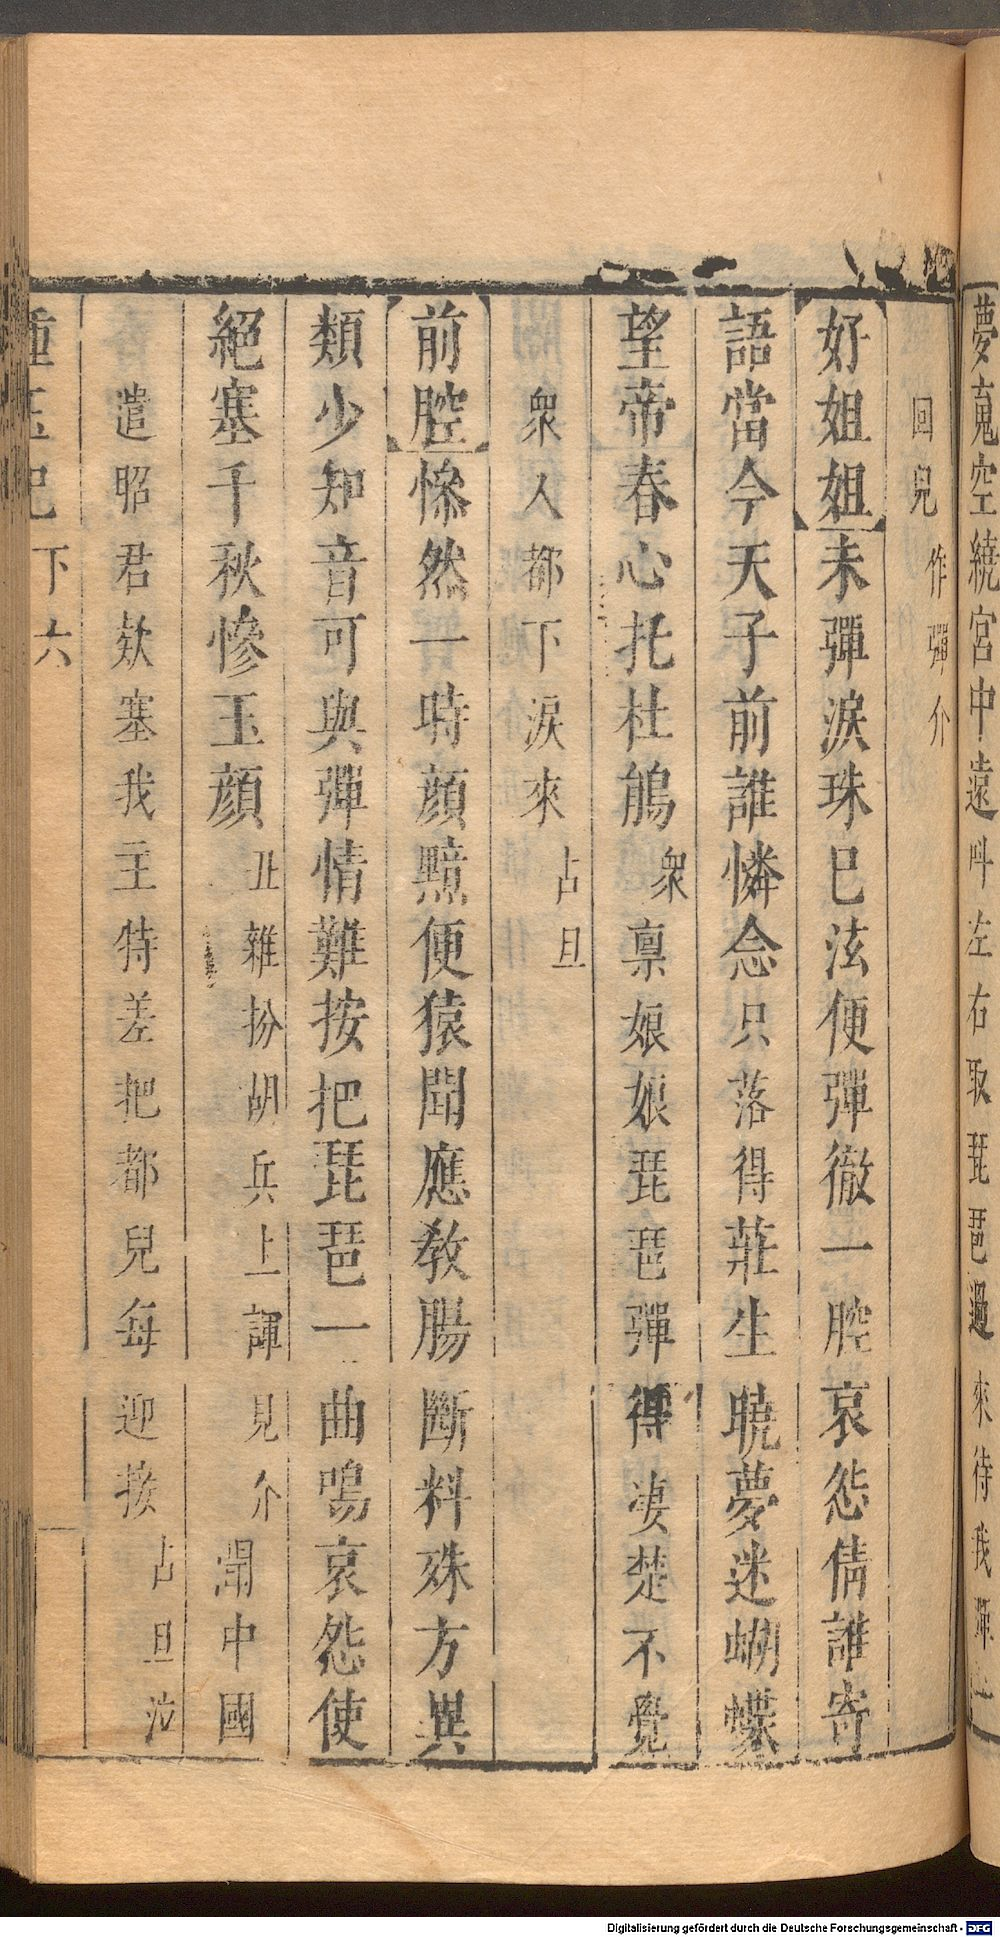 夢䰟空繞宮中遠呌左右取琵琶過來待我彈一
回兒作彈介
【好姐姐】未彈淚珠巳泫便彈徹一腔哀怨倩誰寄
語當今天子前誰憐念只落得莊生曉夢迷蝴蝶
望帝春心托杜鵑衆稟娘娘琵琶彈得凄楚不覺
衆人都下淚來占旦
【前腔】慘然一時顏黯便猿聞應教腸斷料殊方異
類少知音可與彈情難按把琵琶一曲鳴哀怨使
絕塞千秋慘玉顏丑雜扮胡兵上諢見介聞中國
遣昭君欵塞我主特差把都兒每迎接占旦泣
種玉記下六
Digitalisierung gefördert durch die Deutsche Forschungsgemeinschaft - DFG